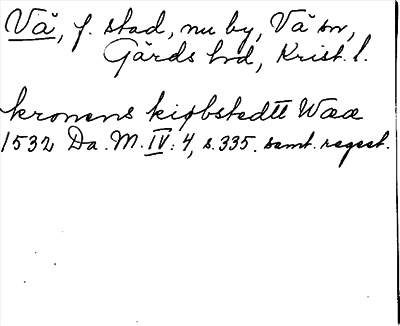 Vä, f. stad, nu by, Vä sn,
Gärds hd, Krist. l.
kronens kiøbstedtt Waa
1532 Da. M. IV: 4, s. 335. samt. regest.